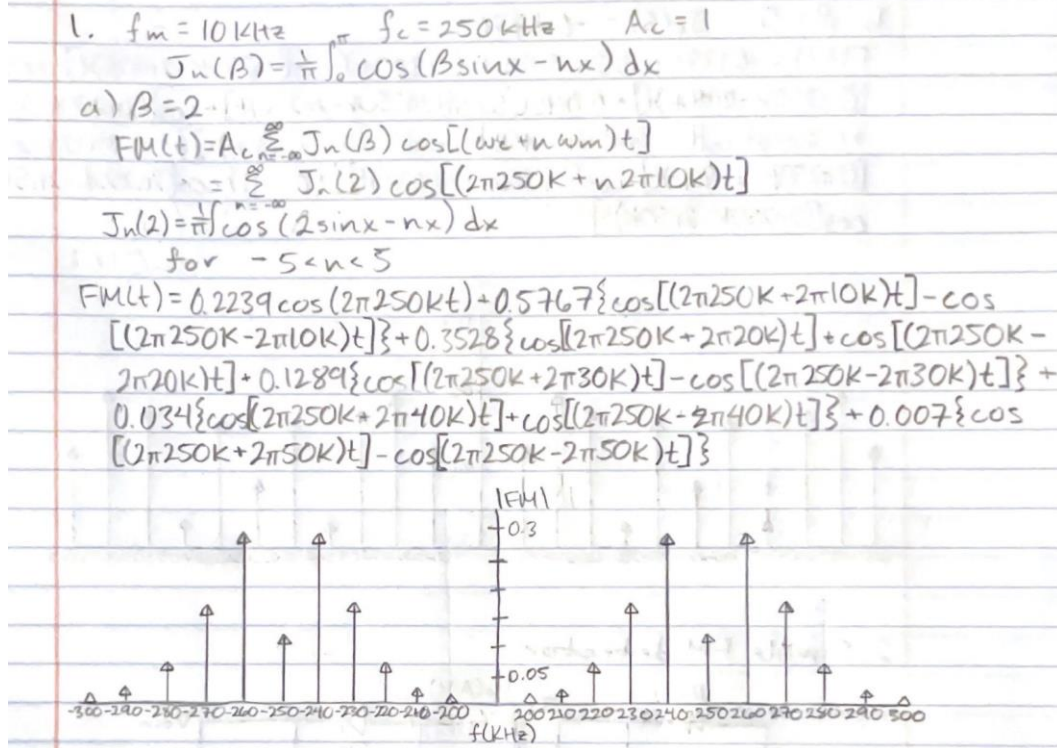 1. fm = 10 KHz fc = 250 kHz Ac = 1
Jn(β) = 1/π ∫₀^π cos(βsinx - nx) dx
a) β = 2
FM(t) = Ac Σ_{n=-∞}^{∞} Jn(β) cos[(ωc+nωm)t]
= Σ_{n=-∞}^{∞} Jn(2) cos[(2π250K + n2π10K)t]
Jn(2) = 1/π ∫ cos(2sinx - nx) dx
for -5<n<5
FM(t) = 0.2239cos(2π250kt) + 0.5767{cos[(2π250K+2π10K)t] - cos
[(2π250K-2π10K)t]} + 0.3528{cos[(2π250K+2π20K)t] + cos[(2π250K-
2π20K)t] + 0.1289{cos[(2π250K+2π30K)t] - cos[(2π250K-2π30K)t]} +
0.034{cos[(2π250K+2π40K)t] + cos[(2π250K-2π40K)t]} + 0.007{cos
[(2π250K+2π50K)t] - cos[(2π250K-2π50K)t]}
|FM|
0.3
0.05
-300 -290 -280 -270 -260 -250 -240 -230 -220 -210 -200 200 210 220 230 240 250 260 270 280 290 300
f(KHz)